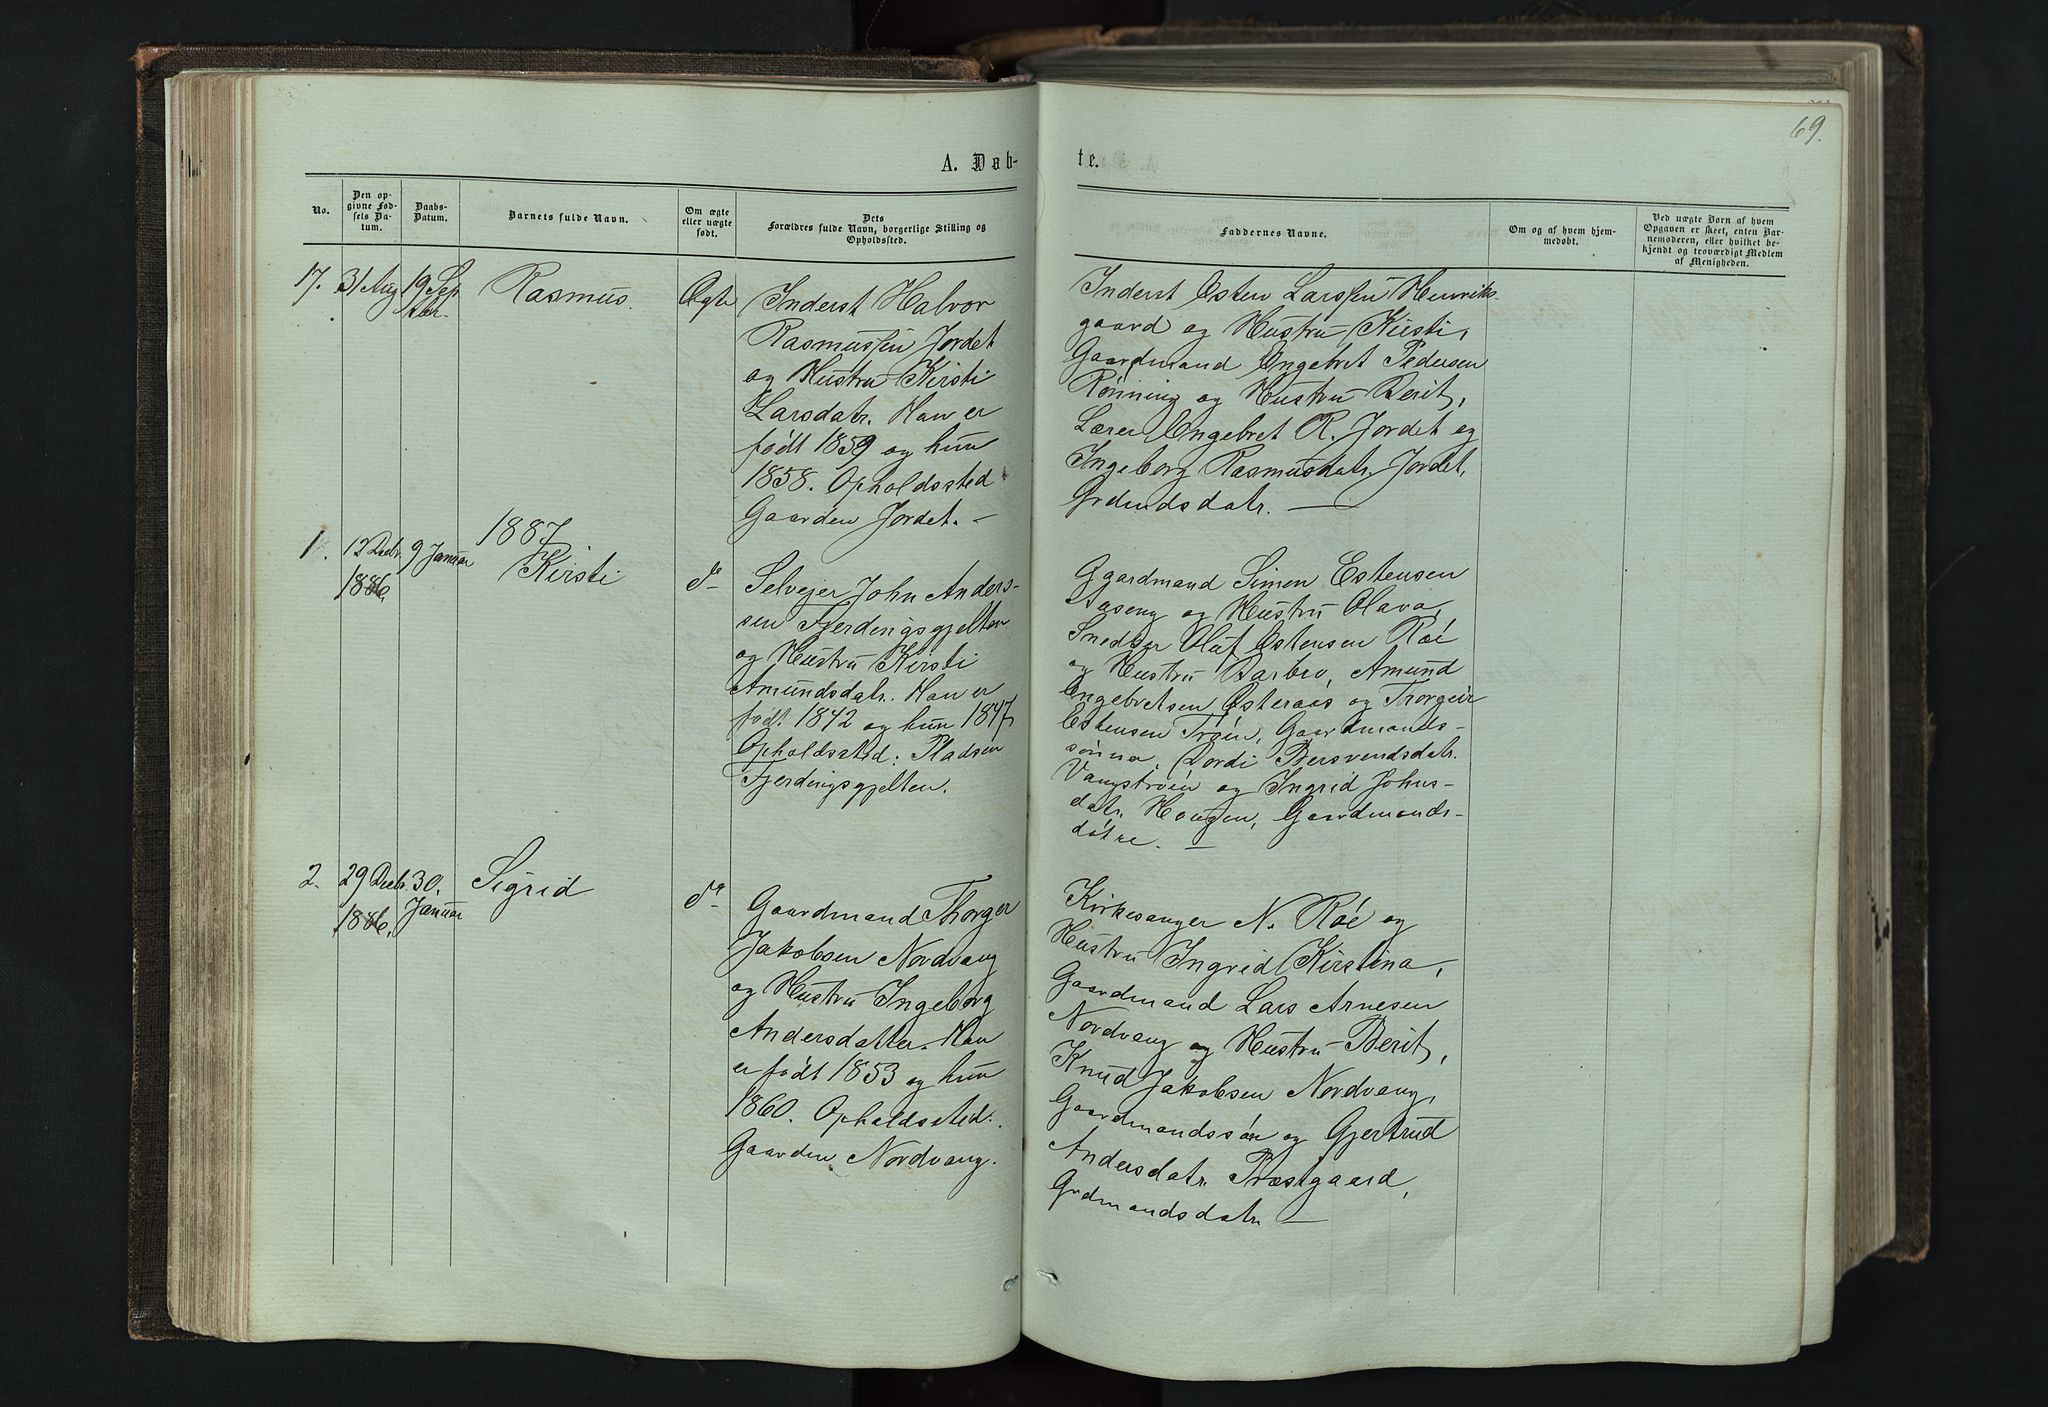 69.
A. Døb-
te.
No.
Den op-
givne Fød-
sels Da-
tum.
Daabs-
Datum.
Barnets fulde Navn.
Om ægte
eller uægte
født.
Dets
Forældres fulde Navn, borgerlige Stilling og
Opholdssted.
Faddernes Navne.
Om og af hvem hjem-
medøbt.
Ved uægte Børn af hvem
Opgaven er skeet, enten Bar-
nemoderen, eller hvilket be-
kjendt og troværdigt Medlem
af Menigheden.
17.
31 Aug
19 Sep
tbr.
Rasmus.
Ægte
Inderst Halvor
Rasmussen Jordet
og Hustru Kirsti
Larsdatr. Han er
født 1859 og hun
1858. Opholdssted
Gaarden Jordet. —
Inderst Esten Larssen Henriks-
gaard og Hustru Kirsti,
Gaardmand Engebret Pedersen
Rønning og Hustru Berit,
Lærer Engebret R. Jordet og
Ingeborg Rasmusdatr. Jordet,
Grdmdsdatr. —
1887
1.
12 Decbr.
1886.
9 Januar
Kirsti
do
Selvejer John Anders-
sen Fjerdingsgjelten
og Hustru Kirsti
Amundsdatr. Han er
født 1842 og hun 1847,
Opholdssted: Pladsen
Fjerdingsgjelten.
Gaardmand Simen Estensen
Aaseng og Hustru Olava,
Snedker Olaf Estensen Røe
og Hustru Barbro, Amund
Engebretsen Østeraas og Thorgeir
Estensen Trøen, Gaardmands-
sønner, Dordi Bersvendsdatr.
Vangstrøen og Ingrid Johns-
datr. Hougen, Gaardmands-
døtre. —
2.
29 Decbr.
1886.
30.
Januar
Sigrid
do
Gaardmand Thorger
Jakobsen Nordvang
og Hustru Ingeborg
Andersdatter. Han
er født 1853 og hun
1860. Opholdssted:
Gaarden Nordvang.
Kirkesanger N. Røe og
Hustru Ingrid Kirstina,
Gaardmand Lars Arnesen
Nordvang og Hustru Berit,
Knud Jakobsen Nordvang,
Gaardmandssøn og Gjertrud
Andersdatr. Præstgaard,
Grdmandsdatr. —